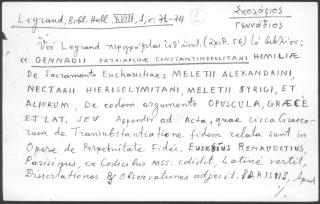 Legrand, Bibl. Hell. XVIII, 1, σ. 71-74
1
Σχολάριος
Γεννάδιος
Ὁ Legrand περιγράφει (ἀριθ. 56) τὸ βιβλίον:
« GENNADII PATRIARCHAE CONSTANTINOPOLITANI HOMILIAE
De Sacramento Eucharistiae: MELETII ALEXANDRINI,
NECTARII HIEROSOLYMITANI, MELETII SYRIGI, ET
ALIORUM, De eodem argumento OPUSCULA, GRÆCÈ
ET LAT, SEU Appendix ad Acta, quae circa Graeco-
rum de Transubstantiatione fidem relata sunt in
Opere de Perpetuitate Fidei. EUSEBIUS RENAUDOTIUS,
Parisinus, ex Codicibus MSS. edidit, Latinè vertit,
Dissertationes & Observationes adjecit. PARISIIS, Apud
%